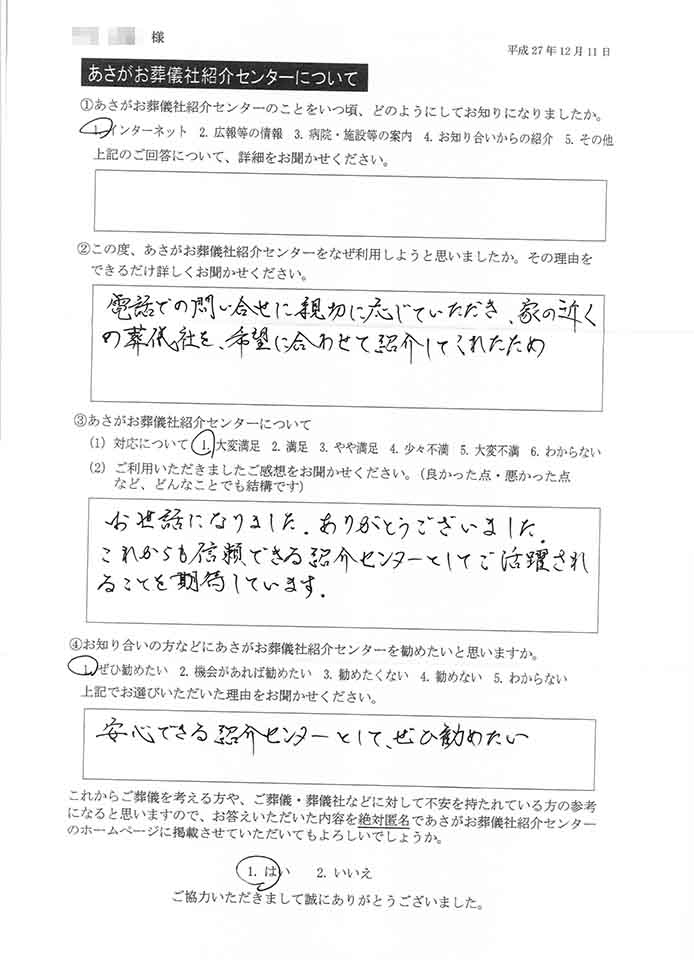 様
平成27年12月11日
あさがお葬儀社紹介センターについて
①あさがお葬儀社紹介センターのことをいつ頃、どのようにしてお知りになりましたか。
1.インターネット 2. 広報等の情報 3. 病院・施設等の案内 4. お知り合いからの紹介 5. その他
上記のご回答について、詳細をお聞かせください。
②この度、あさがお葬儀社紹介センターをなぜ利用しようと思いましたか。その理由を
できるだけ詳しくお聞かせください。
電話での問い合せに親切に応じていただき、家の近く
の葬儀社を、希望に合わせて紹介してくれたため
③あさがお葬儀社紹介センターについて
(1) 対応について 1. 大変満足 2. 満足 3. やや満足 4. 少々不満 5. 大変不満 6. わからない
(2) ご利用いただきましたご感想をお聞かせください。(良かった点・悪かった点
など、どんなことでも結構です)
お世話になりました。ありがとうございました。
これからも信頼できる紹介センターとしてご活躍され
ることを期待しています。
④お知り合いの方などにあさがお葬儀社紹介センターを勧めたいと思いますか。
1.ぜひ勧めたい 2. 機会があれば勧めたい 3. 勧めたくない 4. 勧めない 5. わからない
上記でお選びいただいた理由をお聞かせください。
安心できる紹介センターとして、ぜひ勧めたい
これからご葬儀を考える方や、ご葬儀・葬儀社などに対して不安を持たれている方の参考
になると思いますので、お答えいただいた内容を絶対匿名であさがお葬儀社紹介センター
のホームページに掲載させていただいてもよろしいでしょうか。
1. はい 2. いいえ
ご協力いただきまして誠にありがとうございました。